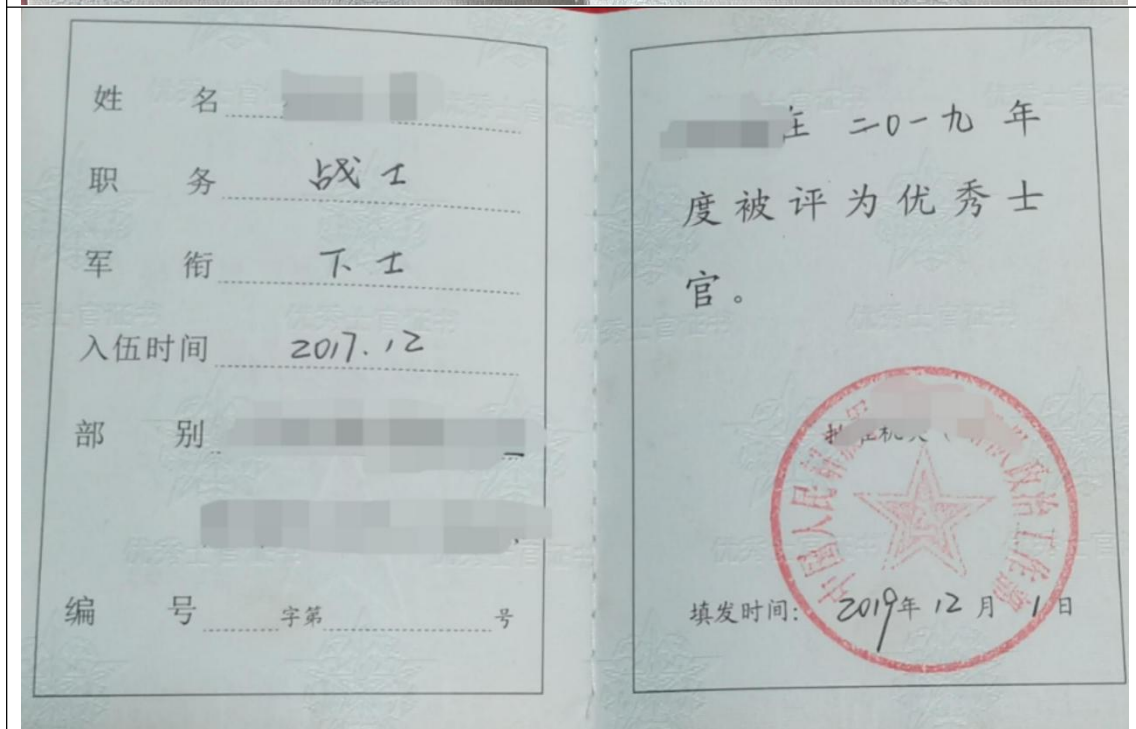 姓 名
职 务 战士
军 衔 下士
入伍时间 2017.12
部 别
编 号 字第 号
在 二0一九 年
度被评为优秀士
官。
中国人民解放军 政治工作部
填发时间: 2019年 12 月 1 日
优秀士官证书